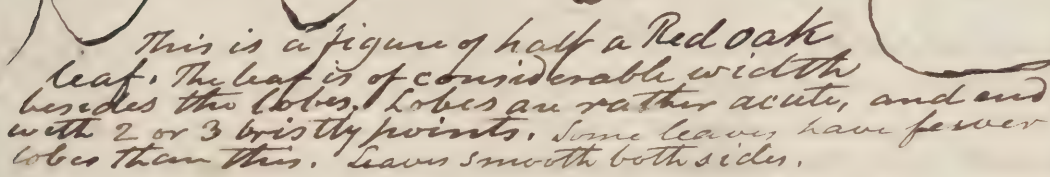 This is a figure of half a Red oak
leaf. The leaf is of considerable width
besides the lobes. Lobes are rather acute, and end
with 2 or 3 bristly points. Some leaves have fewer
lobes than this. Leaves smooth both sides.